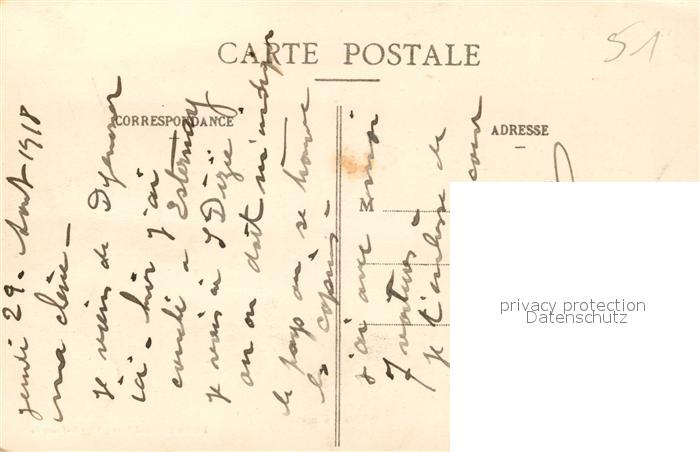 CARTE POSTALE
51
CORRESPONDANCE
ADRESSE
M
jeudi 29 - Aout 1918
ma chérie -
je viens de Déjeuner
ici - hier j'ai
couché à Esternay
je vais à St Dizier
où on doit m'indiquer
le pays où se trouve
la copine -
j'ai avec moi
7 voitures -
je t'embrasse de
coeur
privacy protection
Datenschutz